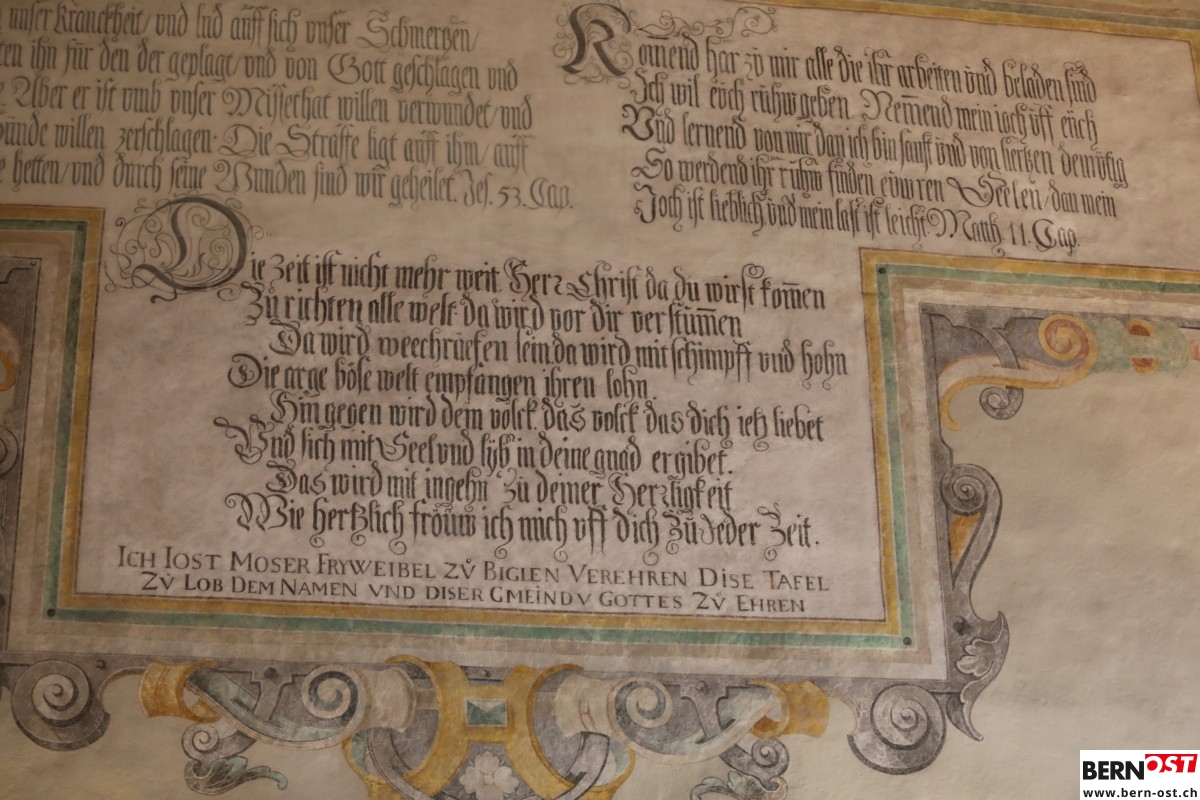 unser Kranckheit/ vnd lud auff sich vnser Schmertzen/
ihn für den der geplagt/ vnd von Gott geschlagen vnd
Aber er ist vmb vnser Missethat willen verwundet/ vnd
willen zerschlagen. Die Straffe ligt auff ihm/ auff
hetten/ vnd durch seine Wunden sind wir geheilet. Jes. 53. Cap.
Kom̄end har zů mir alle die ihr arbeiten vnd beladen sind
Ich wil eüch růhw geben. Nem̄end mein joch vff eüch
Vnd lernend von mir dan ich bin sanft vnd von hertzen demůtig
So werdend ihr růhw finden eüwren Seelen/ dan mein
Joch ist lieblich vnd mein last ist leicht. Math. 11. Cap.
Die Zeit ist nicht mehr weit Herr Christ da du wirst kom̄en
Zu richten alle welt da wird vor dir verstum̄en
Da wird sein da wird mit schimpff vnd hohn
Die arge böse welt empfangen ihren lohn.
Hingegen wird dem volck das volck das dich ietz liebet
Vnd sich mit Seel vnd lyb in deine gnad ergibet.
Das wird mit ingehn Zu deiner Herrligkeit
Wie hertzlich fröuw ich mich vff dich Zu Jeder Zeit.
ICH IOST MOSER FRYWEIBEL Zů BIGLEN VEREHREN DISE TAFEL
Zů LOB DEM NAMEN VND DISER GMEIND V GOTTES Zů EHREN
BERNOST
www.bern-ost.ch